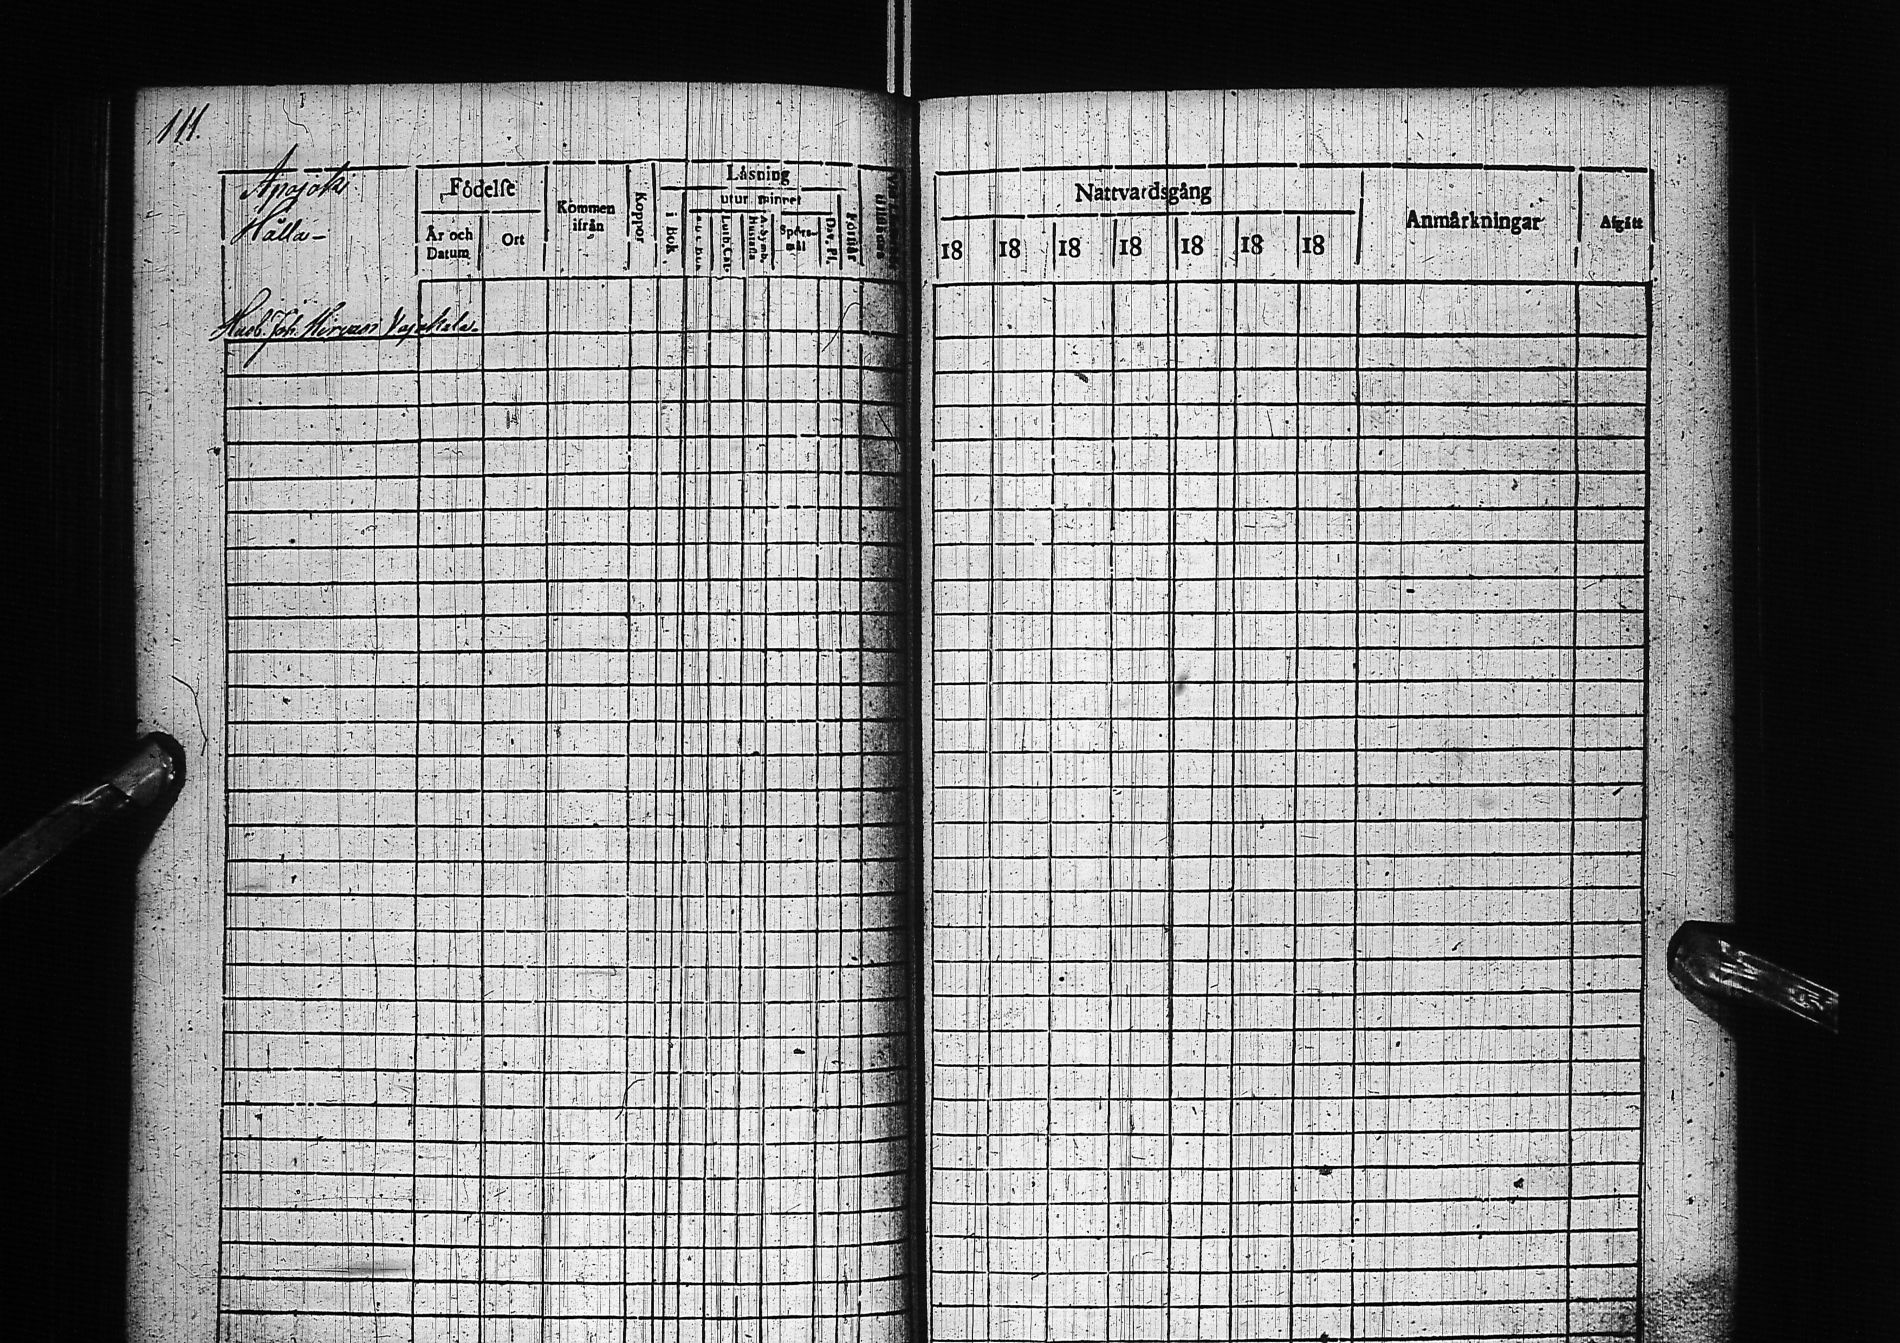 111.
Anajoki
Hålla-
Födelse
År och
Datum
Ort
Kommen
ifrån
Koppor
Låsning
i Bok
utur minnet
Luth. Cat.
Hustafla
A. Symb.
Spörs-
mål
Dav. Ps.
Förstår
Husb. Joh. Hirvasi Vajakala.
Nattvardsgång
18 18 18 18 18 18 18
Anmårkningar
Afgått